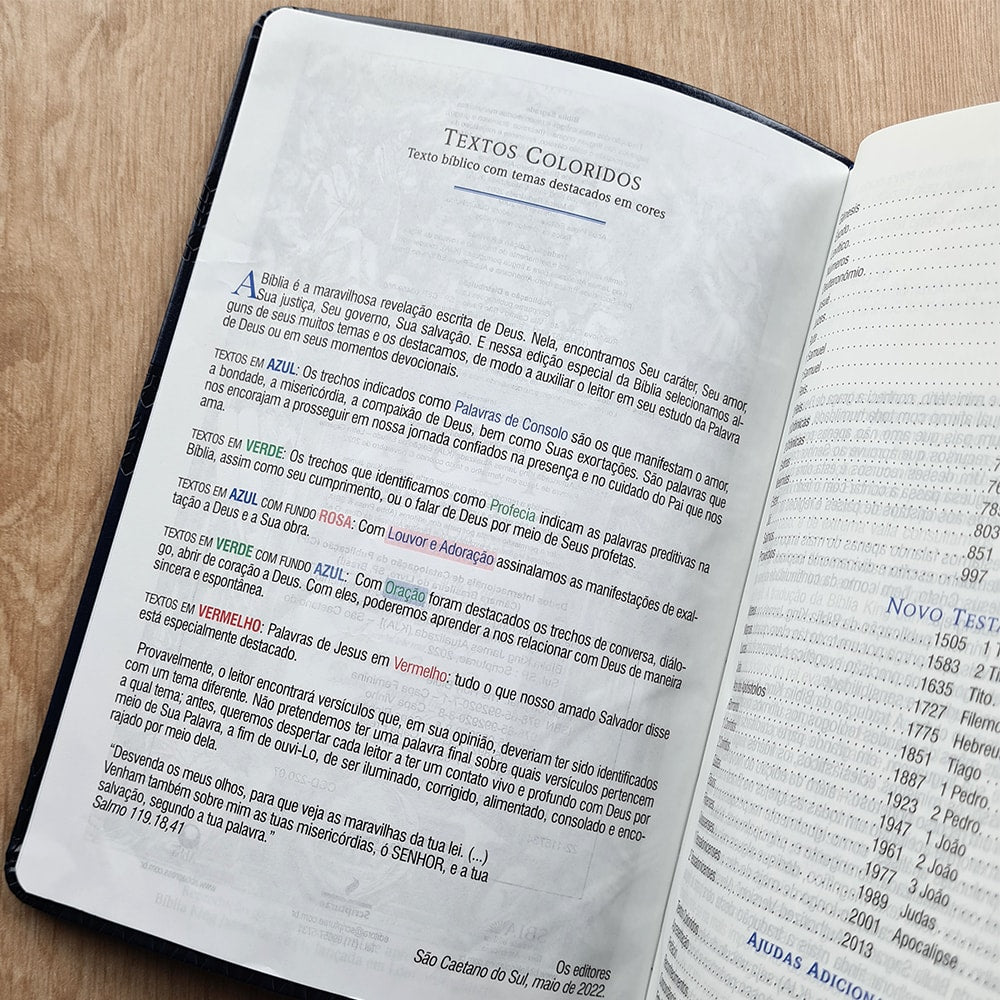 TEXTOS COLORIDOS
Texto bíblico com temas destacados em cores
A Bíblia é a maravilhosa revelação escrita de Deus. Nela, encontramos Seu caráter, Seu amor,
Sua justiça, Seu governo, Sua salvação. E nessa edição especial da Bíblia selecionamos al-
guns de seus muitos temas e os destacamos, de modo a auxiliar o leitor em seu estudo da Palavra
de Deus ou em seus momentos devocionais.
TEXTOS EM AZUL: Os trechos indicados como Palavras de Consolo são os que manifestam o amor,
a bondade, a misericórdia, a compaixão de Deus, bem como Suas exortações. São palavras que
nos encorajam a prosseguir em nossa jornada confiados na presença e no cuidado do Pai que nos
ama.
TEXTOS EM VERDE: Os trechos que identificamos como Profecia indicam as palavras preditivas na
Bíblia, assim como seu cumprimento, ou o falar de Deus por meio de Seus profetas.
TEXTOS EM AZUL COM FUNDO ROSA: Com Louvor e Adoração assinalamos as manifestações de exal-
tação a Deus e a Sua obra.
TEXTOS EM VERDE COM FUNDO AZUL: Com Oração foram destacados os trechos de conversa, diálo-
go, abrir de coração a Deus. Com eles, poderemos aprender a nos relacionar com Deus de maneira
sincera e espontânea.
TEXTOS EM VERMELHO: Palavras de Jesus em Vermelho: tudo o que nosso amado Salvador disse
está especialmente destacado.
Provavelmente, o leitor encontrará versículos que, em sua opinião, deveriam ter sido identificados
com um tema diferente. Não pretendemos ter uma palavra final sobre quais versículos pertencem
a qual tema; antes, queremos despertar cada leitor a ter um contato vivo e profundo com Deus por
meio de Sua Palavra, a fim de ouvi-Lo, de ser iluminado, corrigido, alimentado, consolado e enco-
rajado por meio dela.
"Desvenda os meus olhos, para que veja as maravilhas da tua lei. (...)
Venham também sobre mim as tuas misericórdias, ó SENHOR, e a tua
salvação, segundo a tua palavra."
Salmo 119.18,41
Os editores
São Caetano do Sul, maio de 2022.
785
803
851
997
NOVO
1505
1583
1635 Tito
1727
1775
1851 Tiago
1887 1 Pedro
1923 2 Pedro
1947 1 João
1961 2 João
1977 3 João
1989 Judas
2001 Apocalipse
2013
AJUDAS